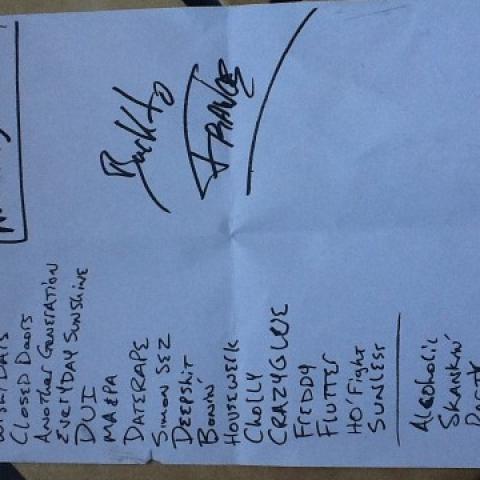 Back to
FRANCE
CLOSED DOORS
Another Generation
EverYDAY SUNShine
DUI
MA&PA
DATERAPE
Simon SEZ
DEEPShit
Bonin'
HOUSEWERK
Cholly
CRAZYGLUE
FREDDY
FLUTTER
HO'Fight
SUNLESS
Alcoholic
SKANKIN'